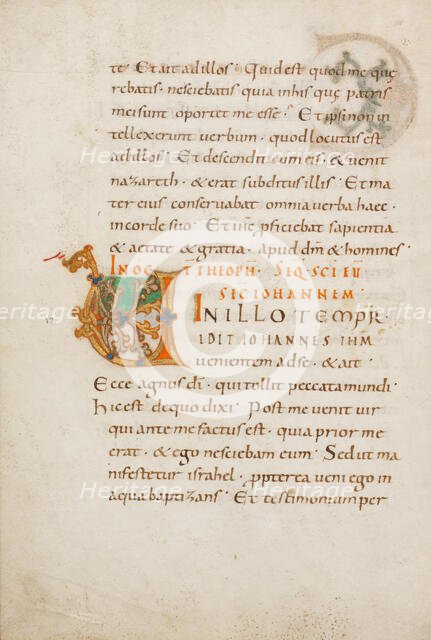 te · Et ait ad illos · Quid est quod me quę
rebatis · nesciebatis quia in his quę patris
mei sunt oportet me esse · Et ipsi non in
tellexerunt verbum · quod locutus est
ad illos · Et descendit cum eis · & venit
nazareth · & erat subditus illis · Et ma
ter eius conservabat omnia verba haec ·
in corde suo · Et ihc̄ proficiebat sapientia
& aetate & gratia · apud dm̄ & homines ·
IN OCT THEOPH · SEQ SCI EU
SEC IOHANNEM
IN ILLO TEMPR
IDIT IOHANNES IHM
venientem ad se · & ait
Ecce agnus dī · qui tollit peccata mundi ·
hic est de quo dixi · Post me venit vir
qui ante me factus est · quia prior me
erat · & ego nesciebam eum · Sed ut ma
nifestetur israhel · ppterea veni ego in
aqua baptizans · Et testimonium per
Heritage
Heritage
Heritage
Heritage
Heritage
Heritage